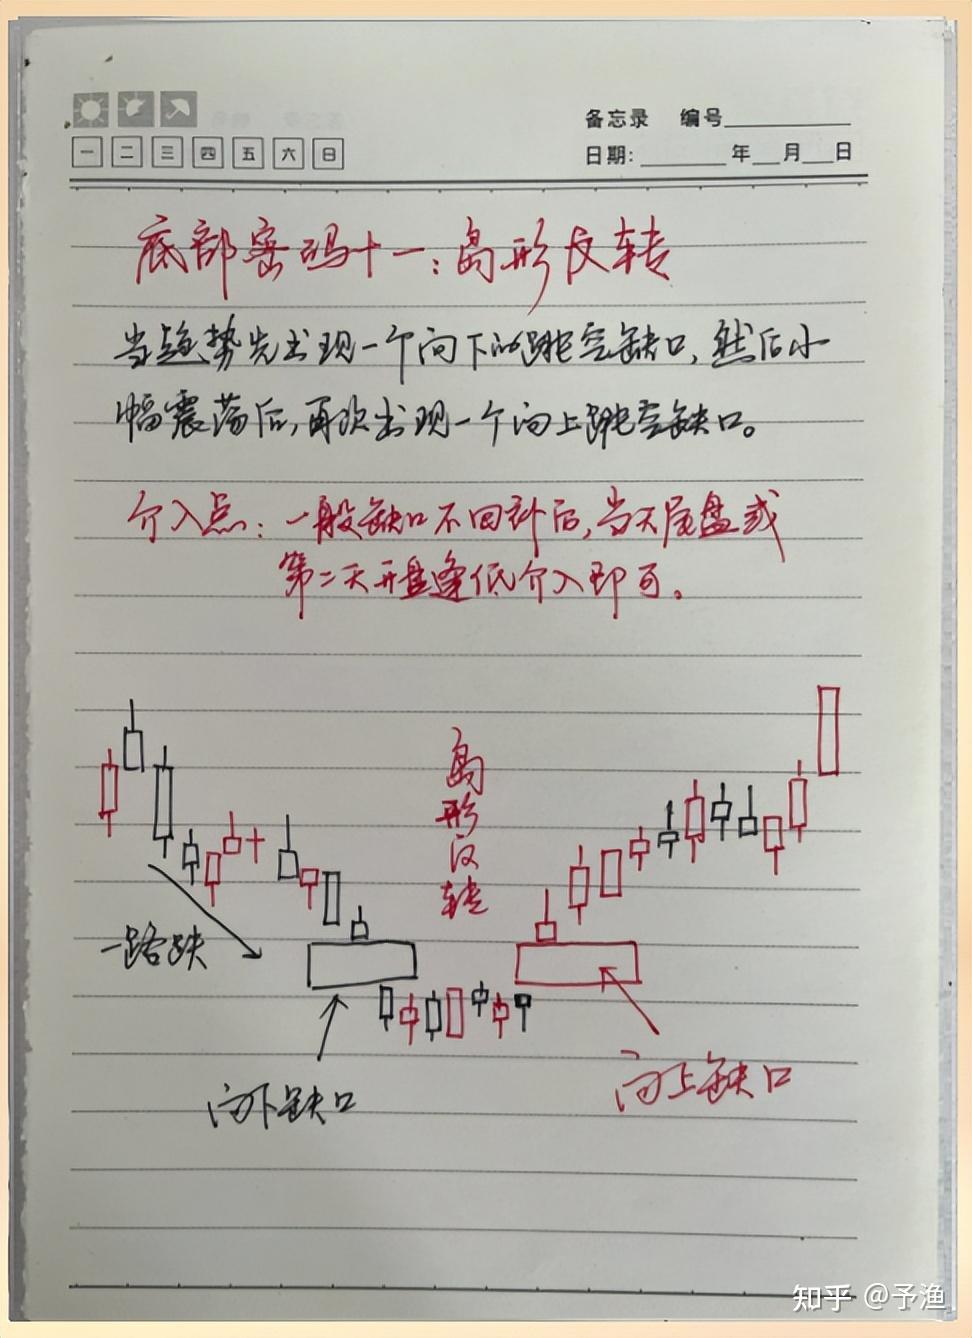 备忘录 编号
一 二 三 四 五 六 日
日期: 年 月 日
底部密码十一:岛形反转
当趋势先出现一个向下的跳空缺口,然后小
幅震荡后,再次出现一个向上跳空缺口。
介入点:一般缺口不回补后,当天尾盘或
第二天开盘逢低介入即可。
岛形反转
一路跌
向下缺口
向上缺口
知乎 @予渔